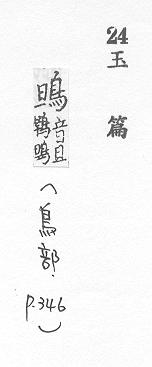 24 玉篇
鴠 音旦 鶡鴠（鳥部. p.346）